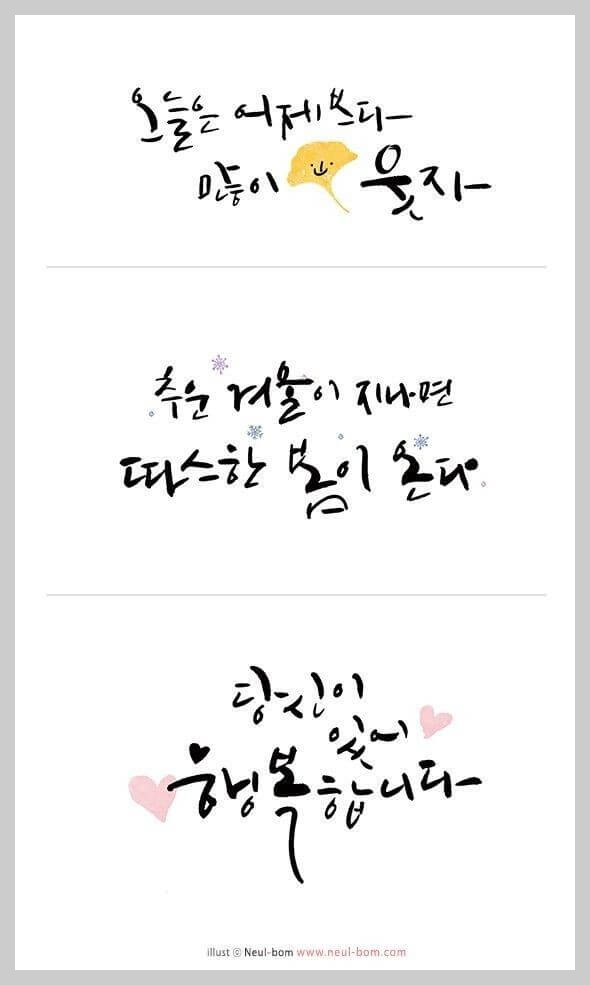 오늘은 어제보다
많이 웃자
추운 겨울이 지나면
따스한 봄이 온다
당신이
있어
행복합니다
illust ⓒ Neul-bom www.neul-bom.com